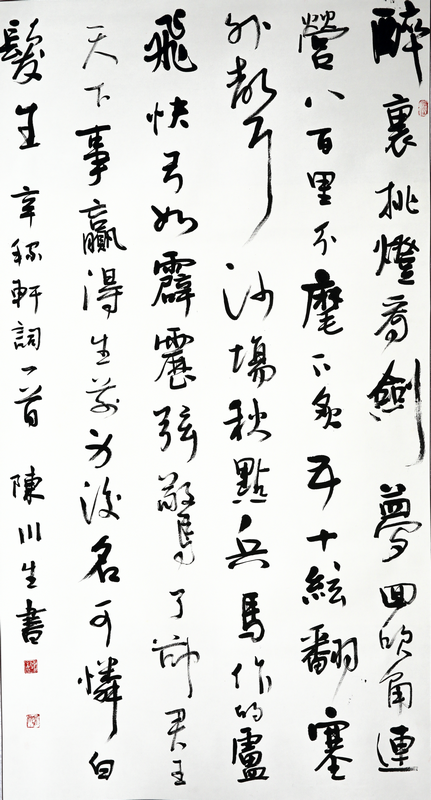 醉裏挑燈看劍夢回吹角連
營八百里分麾下炙五十絃翻塞
外聲沙場秋點兵馬作的盧
飛快弓如霹靂弦驚了卻君王
天下事贏得生前身後名可憐白
髮生 辛稼軒詞一首 陳川生書